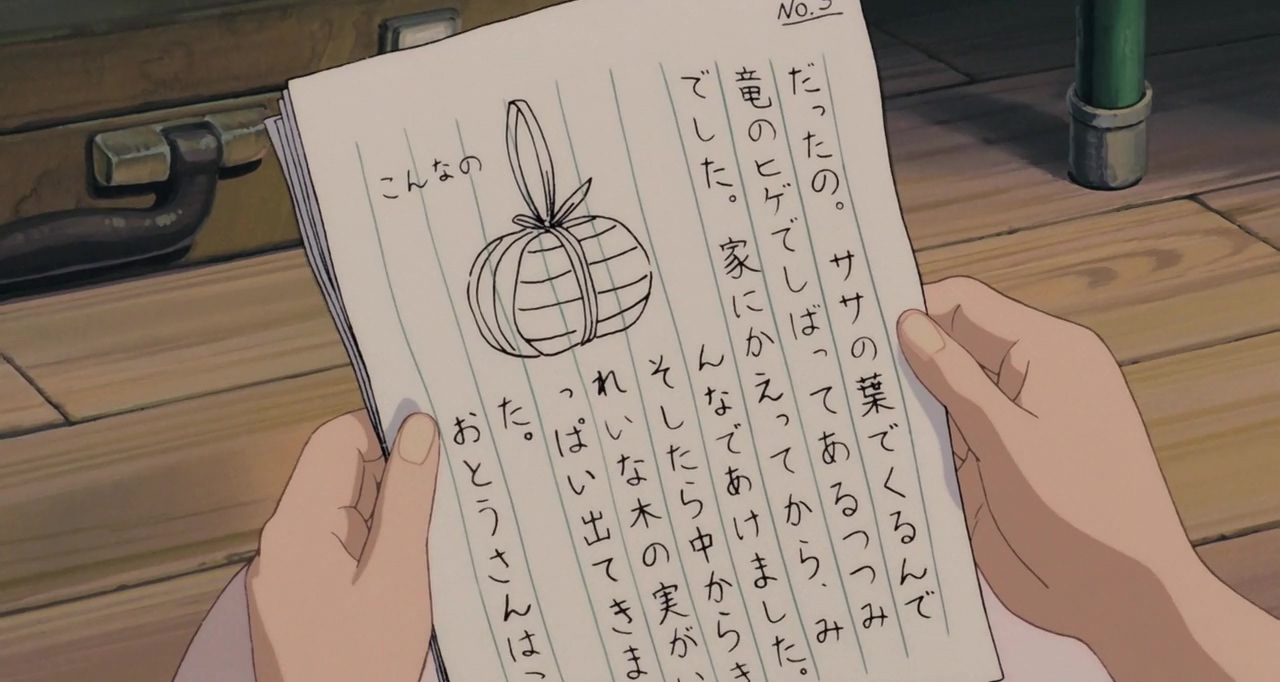 No.3
だったの。ササの葉でくるんで
竜のヒゲでしばってあるつつみ
でした。家にかえってから、み
んなであけました。
そしたら中からき
れいな木の実がい
っぱい出てきま
た。
おとうさんはっ
こんなの